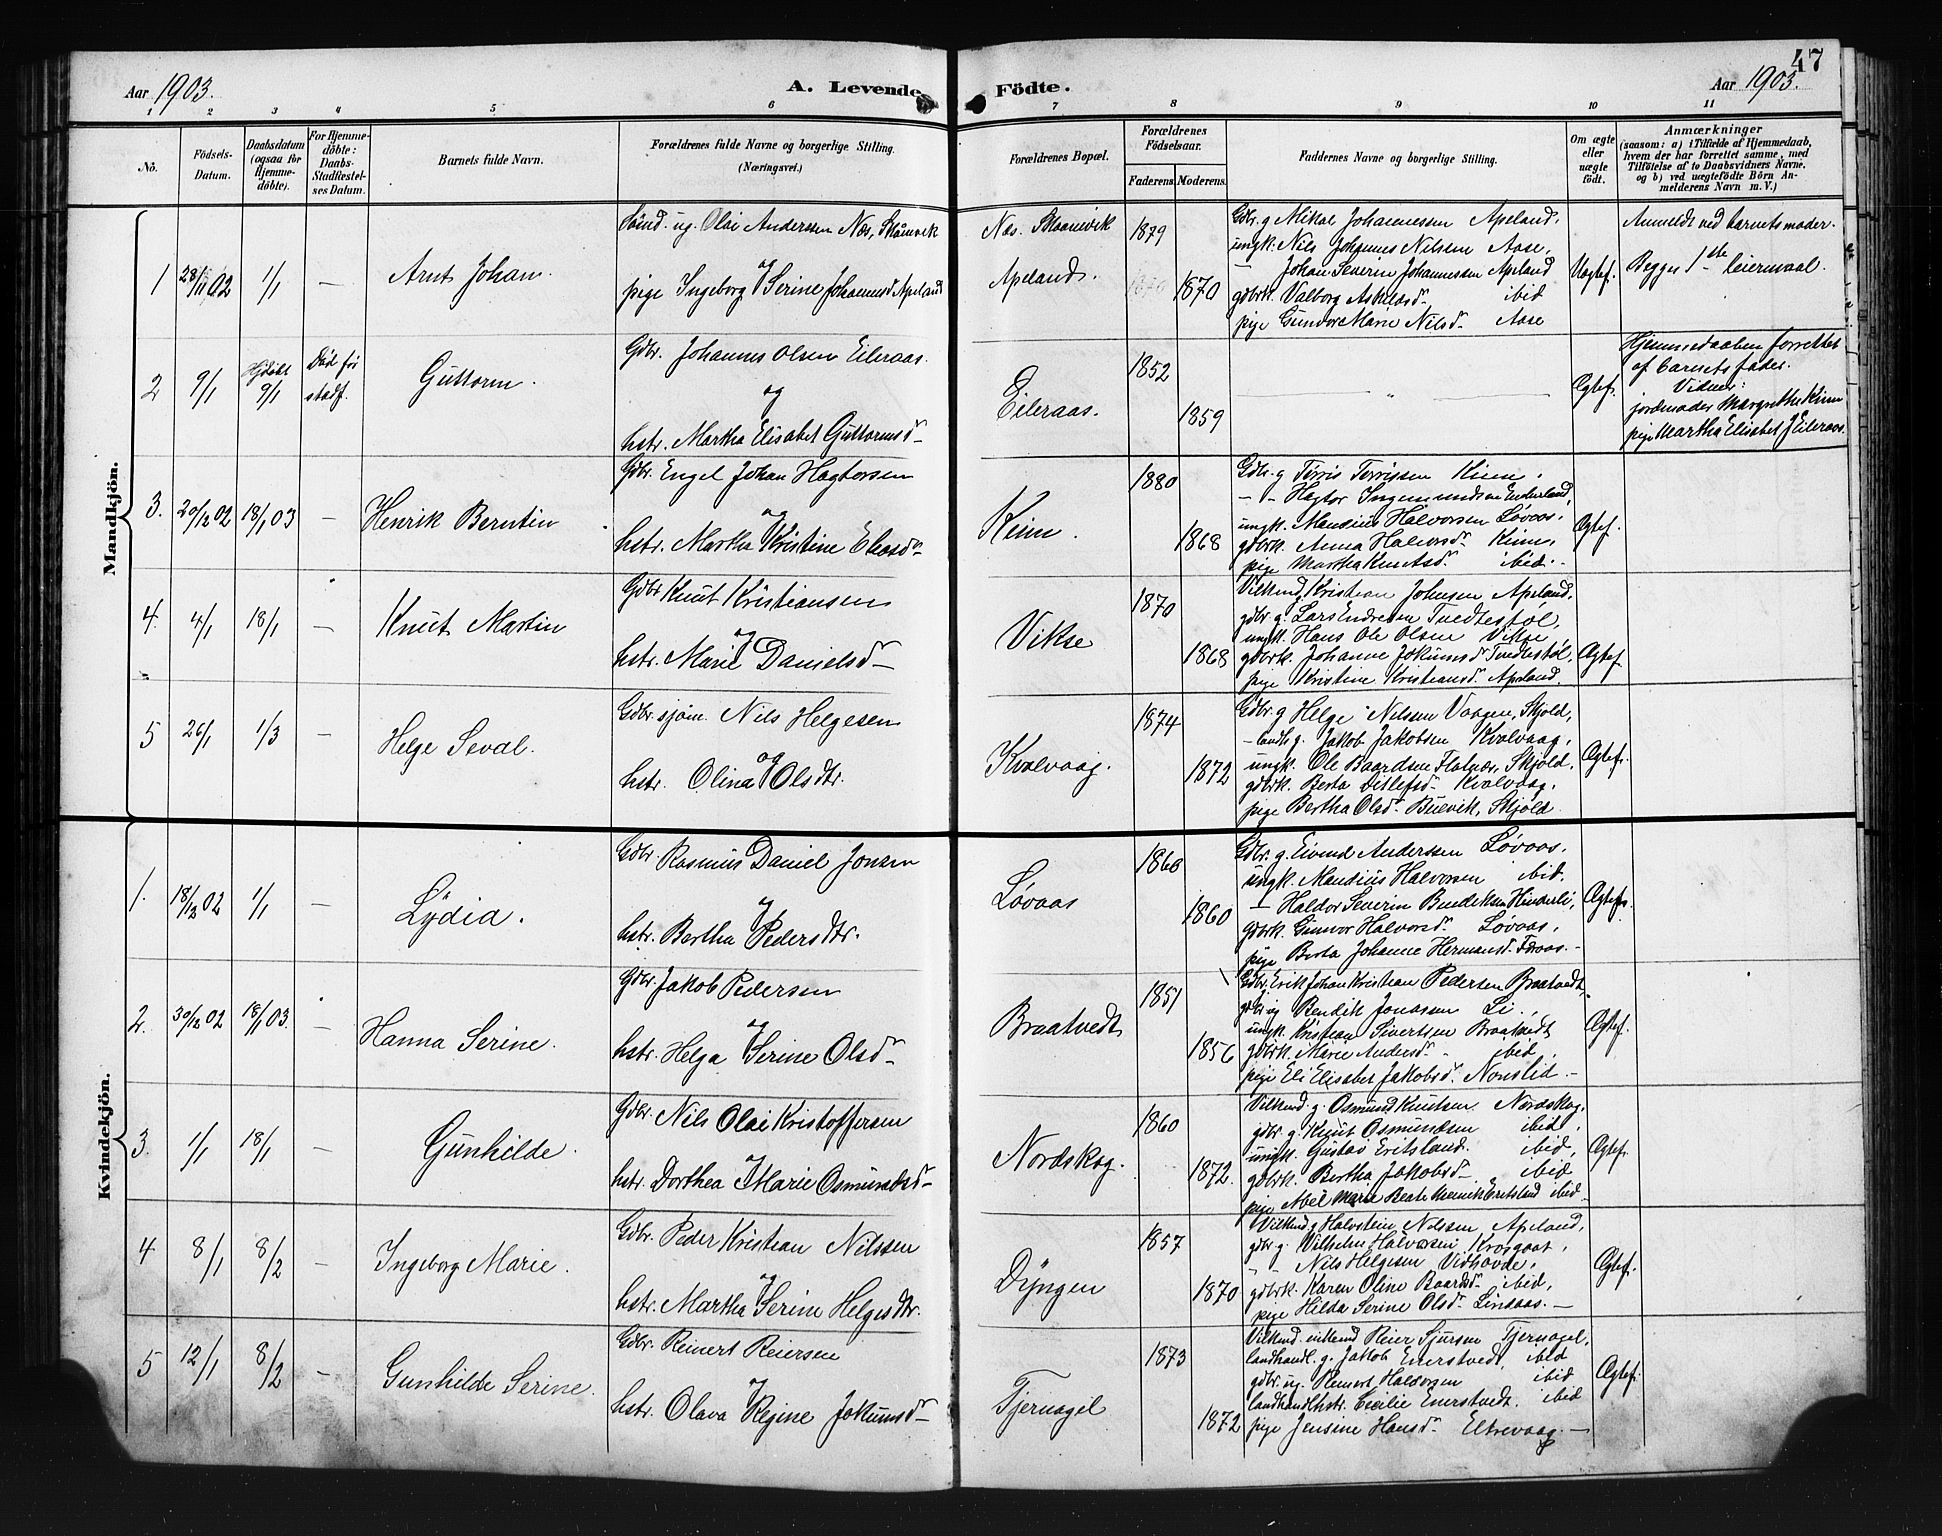 47
Aar 1903.
A. Levende
Födte.
Aar 1903.
1 2 3 4 5 6 7 8 9 10 11
No.
Födsels-Datum.
Daabsdatum (ogsaa for Hjemme-döbte).
For Hjemme-döbte: Daabs-Stadfæstel-ses Datum.
Barnets fulde Navn.
Forældrenes fulde Navne og borgerlige Stilling. (Næringsvei.)
Forældrenes Bopæl.
Forældrenes Födselsaar.
Faderens. Moderens.
Faddernes Navne og borgerlige Stilling.
Om ægte eller uægte födt.
Anmærkninger
(saasom: a) i Tilfælde af Hjemmedaab, hvem der har forrettet samme, med Tilföielse af to Daabsvidners Navne, og b) ved uægtefödte Börn An-melderens Navn m. V.)
Mandkjön.
1 28/11 02 1/1 — Arnt Johan.
ug. Olai Anderssen Næs, Skånevik
og
pige Ingeborg Serine Johannesd. Apeland
Næs. Skaanevik
Apeland.
1879
1870
Gdbr. g. Mikal Johannessen Apeland,
ungk. Nils Johannes Nilssen Aase,
— Johan Severin Johannessen Apeland
gdbrk. Valborg Aslaksd. ibid
pige Gunvor Marie Nilsd. Aase
Uægtef.
Anmeldt ved barnets moder.
Begges 1ste leiermaal.
2 9/1 Hjdöbt 9/1 Död för stadf. Guttorm.
Gdbr. Johannes Olsen Eileraas.
og
hstr. Martha Elisabet Guttormsd.
Eileraas.
1852
1859
Ægtef.
Hjemmedaaben forrettet
af barnets fader.
Vidner:
jordmoder Margrethe Kinn
pige Martha Elisabet J. Eileraas.
3. 20/12 02 18/1 03 — Henrik Berntin
Gdbr. Engel Johan Hagtorsen
og
hstr. Martha Kristine Eliasd.
Kinn.
1880
1868
Gdbr. g. Törris Torrissen Kinn,
— " — Hagtor Ingemundsen Enderland,
ungk. Mandius Halvorsen Lövaas,
gdbrk. Anna Halvorsd. Kinn,
pige Martha Knutsd. ibid.
Ægtef.
4. 4/1 18/1 — Knut Martin
Gdbr. Knut Kristiansen
og
hstr. Marie Danielsd.
Vikse
1870
1868
Vilkmd. Kristian Johnsen Apeland,
gdbr. g. Lars Endresen Tvedtestöl,
ungk. Hans Ole Olsen Vikse,
gdbrk. Johanne Jokumsd. Tvedtestöl,
pige Kristine Kristiansd. Apeland.
Ægtef.
5 26/1 1/3 — Helge Seval.
Gdbr. sjöm. Nils Helgesen
og
hstr. Olina Olsdtr.
Kvalvaag.
1874
1872
Gdbr. g. Helge Nilssen Vaagen, Skjold,
— landh. g. Jakob Jakobsen Kvalvaag,
ungk. Ole Baardsen Flatnæs, Skjold,
gdbrk. Berta Ditlefsd. Kvalvaag,
pige Bertha Olsd. Buevik, Skjold.
Ægtef.
Kvindekjön.
1. 18/12 02 1/1 — Lydia.
Gdbr. Rasmus Daniel Jonsen
og
hstr. Bertha Pedersdtr.
Lövaas
1860
1860
Gdbr. g. Eivind Anderssen Lövaas,
ungk. Mandius Halvorsen ibid.
— Haldor Severin Hinderli,
gdbrk. Gunvor Halvorsd. Lövaas,
pige Berta Johanne Hermansd.
Ægtef.
2. 30/12 02 18/1 03. — Hanna Serine.
Gdbr. Jakob Pedersen
og
hstr. Helga Serine Olsd.
Braatvedt
1851
1856
Gdbr. Erik Johan Kristian Pedersen Braatvedt,
gdbr. ug. Bendik Jonassen Li,
ungk. Kristian Sivertsen Braatvedt
gdbrk. Marie Andersd. ibid,
pige Eli Elisabet Jakobsd. Nonslid.
Ægtef.
3. 1/1 18/1 — Gunhilde.
Gdbr. Nils Olai Kristoffersen
og
hstr. Dorthea Marie Osmundsd.
Nordskog.
1860
1872.
Vilkmd. g. Osmund Knutsen Nordskog,
gdbr. g. Knut Osmundsen ibid,
ungk. Gustav Eritsland. ibid,
gdbrk. Bertha Jakobsd. ibid
pige Abel Maria Beate Eritsland ibid
Ægtef.
4 8/1 8/2 — Ingeborg Marie.
Gdbr. Peder Kristian Nilssen
og
hstr. Martha Serine Helgesdtr.
Dyngen
1857
1870
Vilkmd. g. Halvstein Nilssen Apeland,
gdbr. g. Vilhelm Halvorsen Krosgaat,
" — Nils Helgesen Vidhovde,
gdbrk. Karen Oline Baardsd. ibid,
pige Hilda Serine Olsd. Lindaas.
Ægtef.
5 12/1 8/2 — Gunhilde Serine.
Gdbr. Reinert Reiersen
og
hstr. Olava Regine Jokumsd.
Tjernagel
1873
1872
Vilkmd. enkemd Reier Sjursen Tjernagel,
landhandl. g. Jakob Enerstvedt, ibid
gdbr. ug. Reinert Haldorsen ibid
landhandlhstr. Cecilie Enerstvedt. ibid
pige Jensine Hansd. Eltrevaag.
Ægtef.